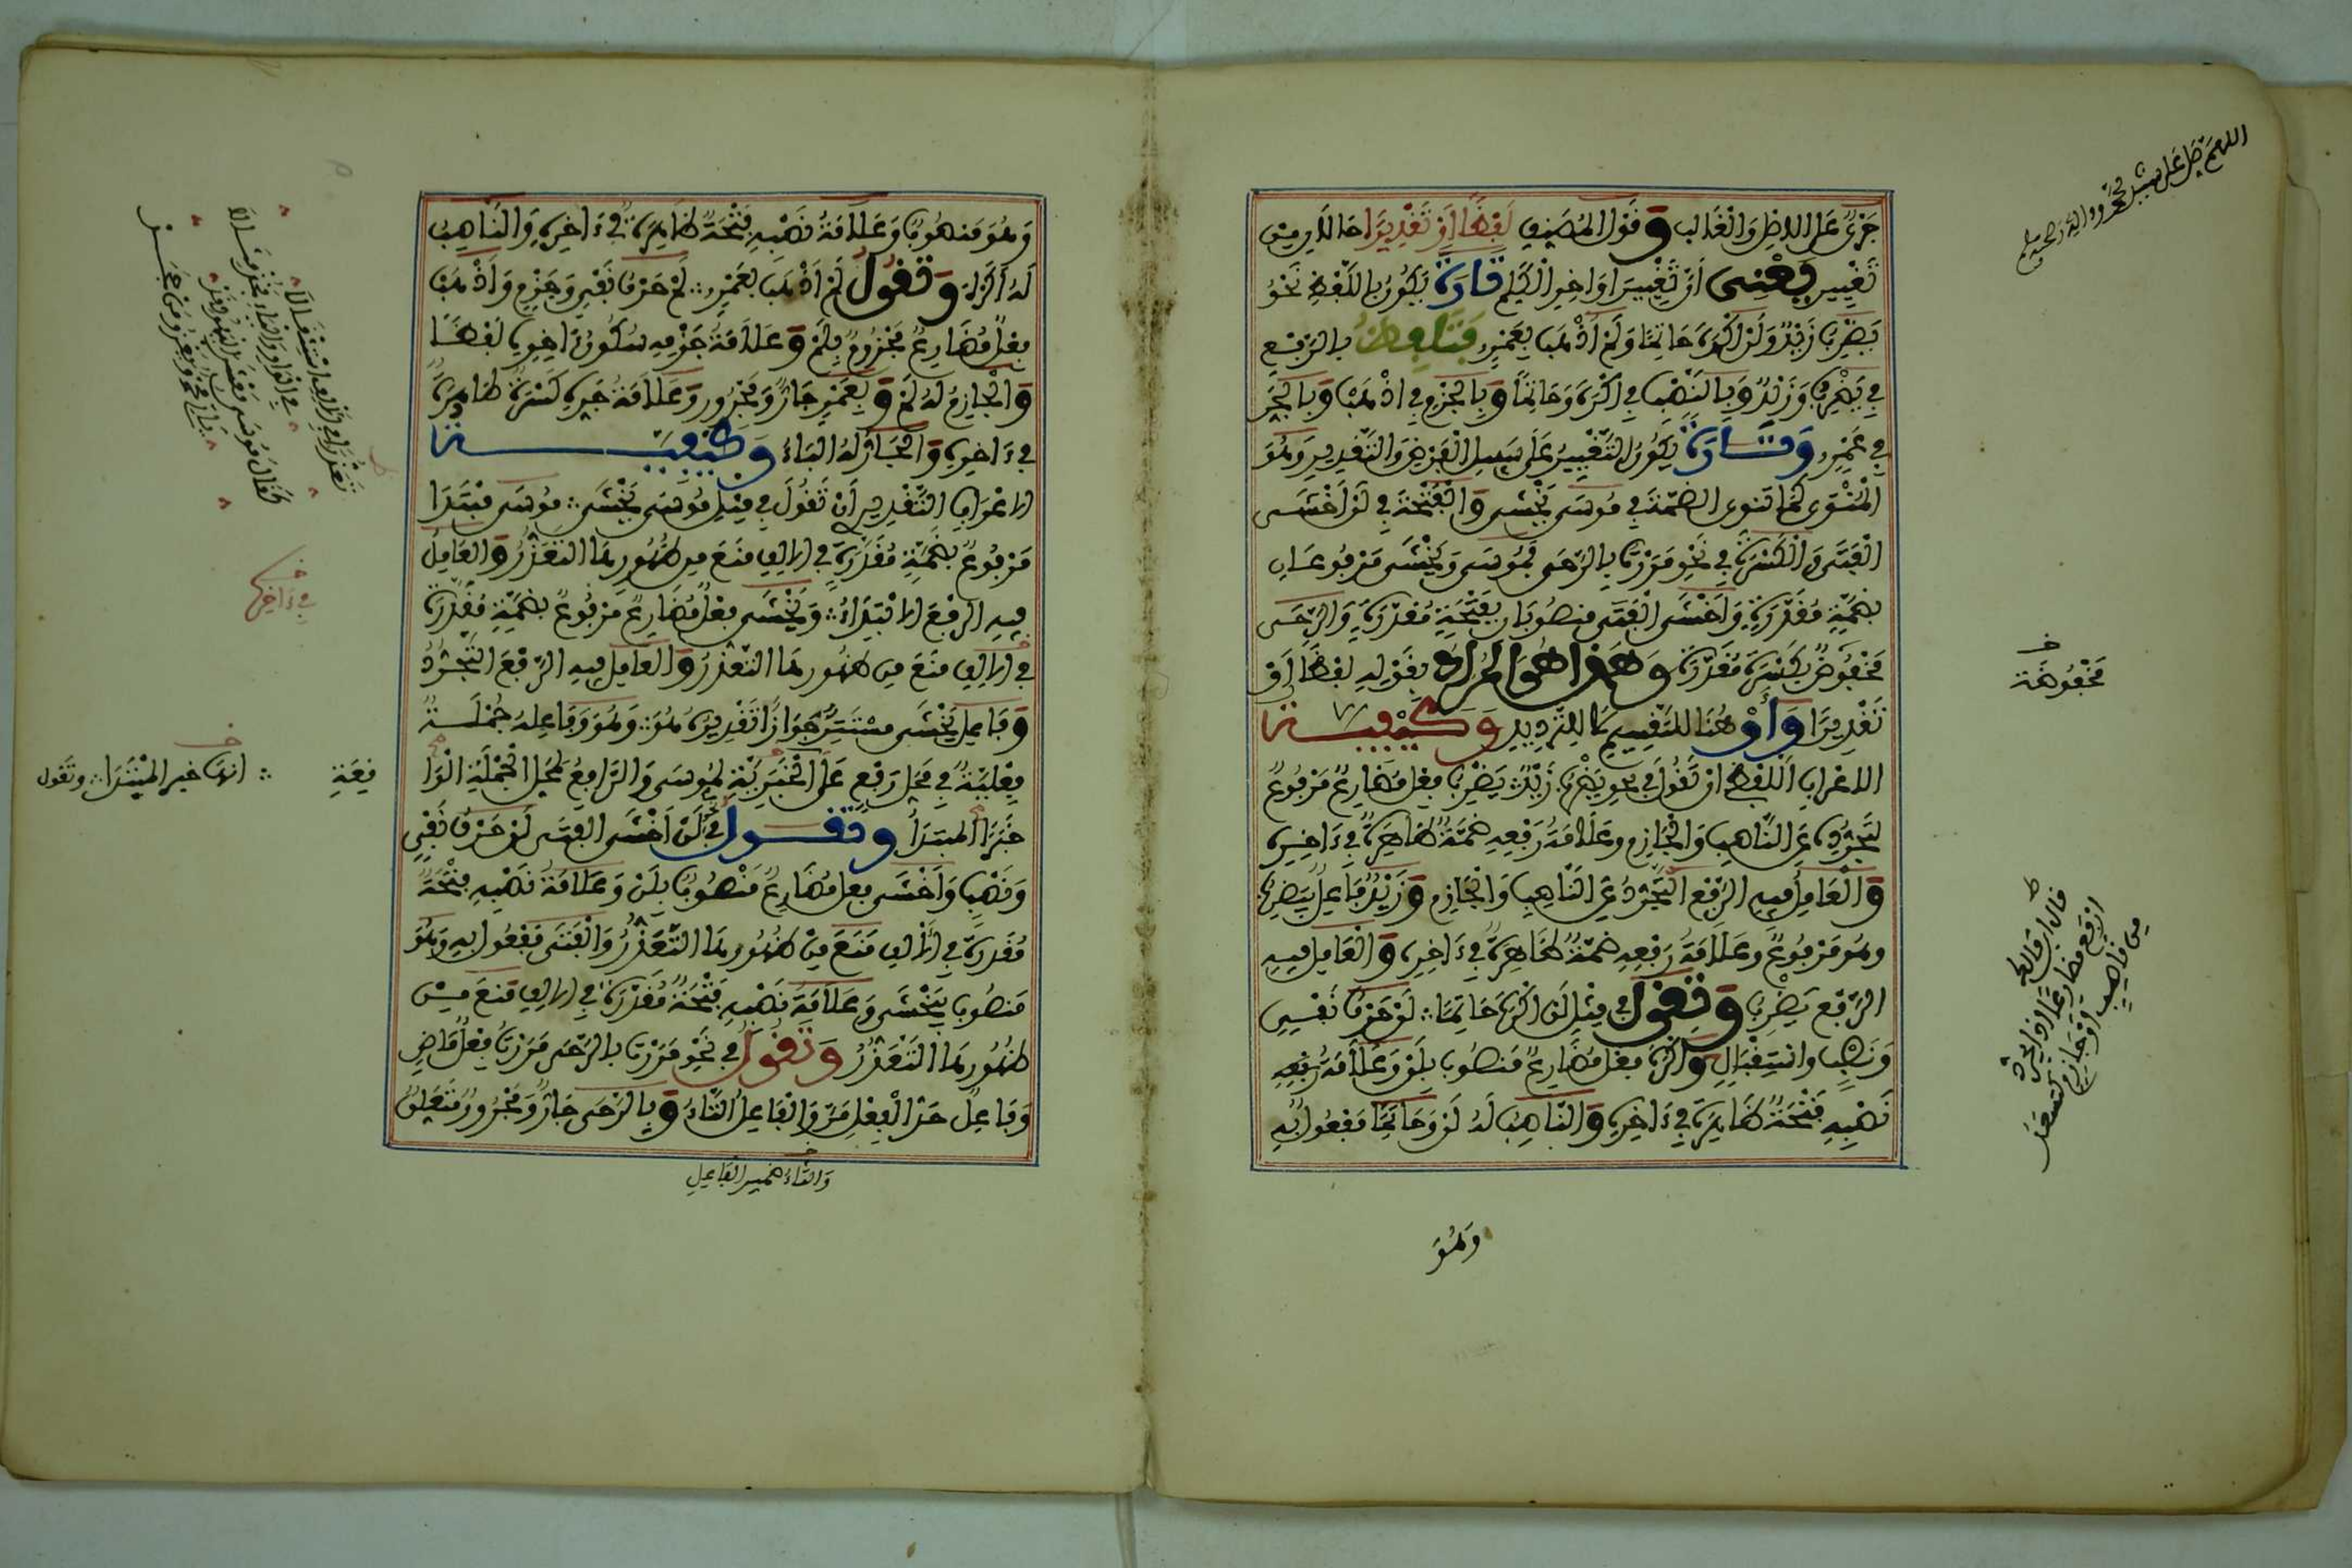 اللهم صل على سيدنا محمد وءاله وصحبه وسلم
جرى على اللافظ والغالب وقول المصنف لفظا او تقديرا حالان من
تغيير يعني أن تغيير أواخر الكلم تارة يكون باللفظ نحو
يضرب زيد ولن اكرم حاتما ولم اذهب بعمرو بالرفع
في يضرب وزيد وبالنصب في اكرم وحاتما وبالجزم في اذهب وبالجر
في عمرو وتارة يكون التغيير على سبيل الفرض والتقدير وهو
المنوى كما تنوى الضمة في موسى يخشى والفتحة في لن اخشى
الفتى والكسرة في نحو مررت بالرحى فموسى ويخشى مرفوعان
بضمة مقدرة واخشى الفتى منصوبان بفتحة مقدرة والرحى
مخفوض بكسرة مقدرة وهذا هو المراد بقوله لفظا او
تقديرا وأو هنا للتقسيم لا للترديد وكيفية
الاعراب اللفظي ان تقول في نحو يضرب زيد يضرب فعل مضارع مرفوع
لتجرده عن الناصب والجازم وعلامة رفعه ضمة ظاهرة في ءاخره
والعامل فيه الرفع التجرد عن الناصب والجازم وزيد فاعل يضرب
وهو مرفوع وعلامة رفعه ضمة ظاهرة في ءاخره والعامل فيه
الرفع يضرب وتقول في مثل لن اكرم حاتما لن حرف نفي
ونصب واستقبال واكرم فعل مضارع منصوب بلن وعلامة رفعه
نصبه فتحة ظاهرة في ءاخره والناصب له لن وحاتما مفعول به
مخفوضة
قال ابن مالك
ارفع مضارعا اذا يجرد
من ناصب او جازم كتسعد
وهو
وهو منصوب وعلامة نصبه فتحة ظاهرة في ءاخره والناصب
له اكرم وتقول لم اذهب بعمرو لم حرف نفي وجزم واذهب
فعل مضارع مجزوم بلم وعلامة جزمه سكون ءاخره لفظا
والجازم له لم وبعمرو جار ومجرور وعلامة جره كسرة ظاهرة
في ءاخره والجار له الباء وكيفية
الاعراب التقدير ان تقول في مثل موسى يخشى موسى مبتدا
مرفوع بضمة مقدرة في الالف منع من ظهورها التعذر والعامل
فيه الرفع الابتداء ويخشى فعل مضارع مرفوع بضمة مقدرة
في الالف منع من ظهورها التعذر والعامل فيه الرفع التجرد
وفاعل يخشى مستتر جوازا تقديره هو وهو وفاعله جملة
فعلية في محل رفع على الخبرية لموسى والرافع لمحل الجملة الوا
خبرا المبتدأ وتقول في لن اخشى الفتى لن حرف نفي
ونصب واخشى فعل مضارع منصوب بلن وعلامة نصبه فتحة
مقدرة في الالف منع من ظهورها التعذر والفتى مفعول به وهو
منصوب بيخشى وعلامة نصبه فتحة مقدرة في الالف منع من
ظهورها التعذر وتقول في نحو مررت بالرحى مررت فعل ماض
وفاعل حد الفعل مر والفاعل التاء وبالرحى جار ومجرور متعلق
والتاء ضمير الفاعل
في ءاخرها
فعة
انها خبر المبتدا وتقول